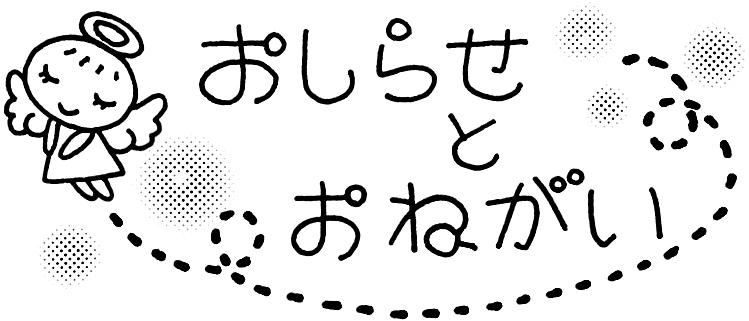 おしらせ
と
おねがい